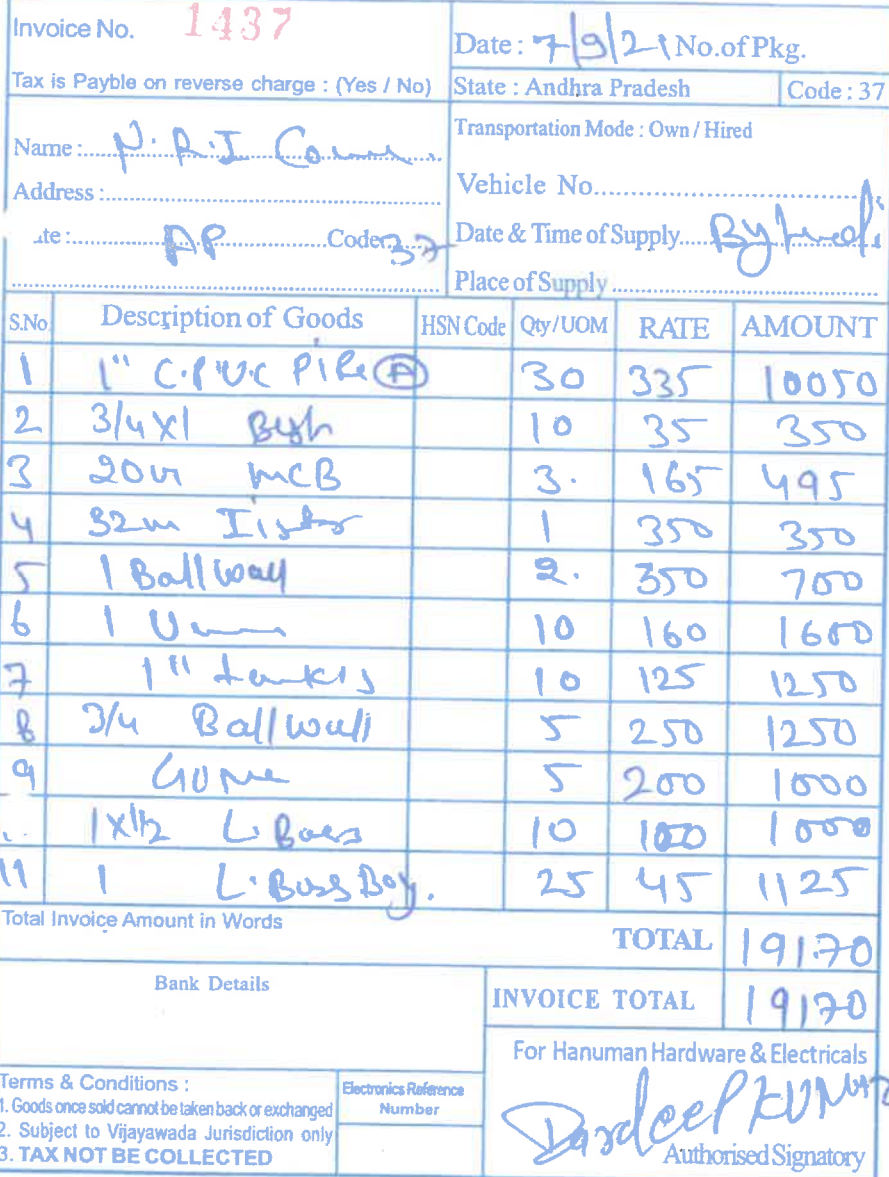 Invoice No. 1437
Date : 7/9/21 No.of Pkg.
Tax is Payble on reverse charge : (Yes / No)
State : Andhra Pradesh Code : 37
Transportation Mode : Own / Hired
Name : N.R.I
Vehicle No.
Address :
Date & Time of Supply By
ate : AP Code 37
Place of Supply
S.No Description of Goods HSN Code Qty/UOM RATE AMOUNT
1 1" C.P.V.C PIPe A 30 335 10050
2 3/4 x1 Bush 10 35 350
3 MCB 3. 165 495
4 32 1 350 350
5 1 Ball 2. 350 700
6 1 10 160 1600
7 1" 10 125 1250
8 3/4 Ball 5 250 1250
9 5 200 1000
1x1/2 L. 10 100 1000
11 1 L. Boss 25 45 1125
Total Invoice Amount in Words
TOTAL 19170
Bank Details
INVOICE TOTAL 19170
For Hanuman Hardware & Electricals
Terms & Conditions :
1. Goods once sold cannot be taken back or exchanged
2. Subject to Vijayawada Jurisdiction only
3. TAX NOT BE COLLECTED
Electronics Reference
Number
KUMAR
Authorised Signatory